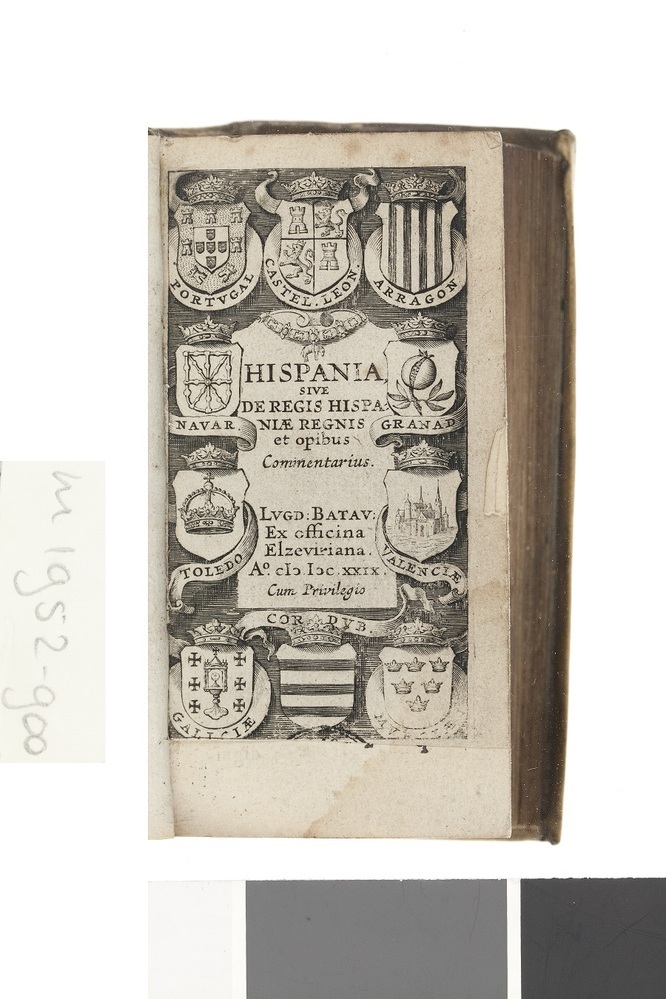 PORTVGAL
CASTEL. LEON.
ARRAGON
HISPANIA,
SIVE
DE REGIS HISPA-
NIÆ REGNIS
et opibus
Commentarius.
NAVAR.
GRANAD
LVGD: BATAV:
Ex officina
Elzeviriana.
Aº. cIↄ. Iↄc. xxix.
Cum Privilegio
TOLEDO
VALENCIÆ
CORDVB.
GALICIÆ
m 1952-900